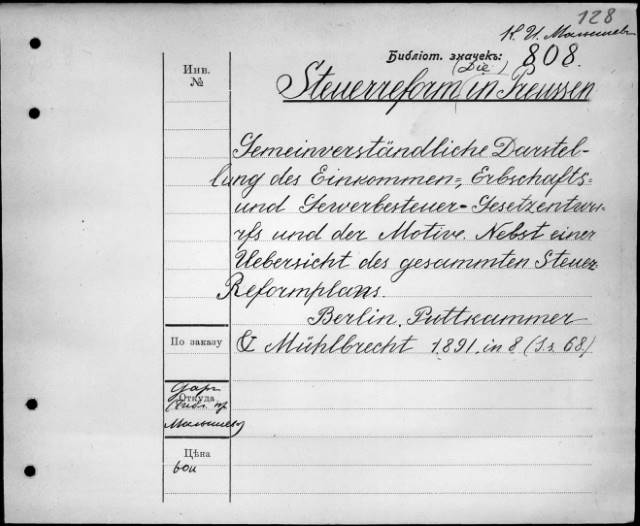 128
К. И. Малышев
Библіот. значекъ: 808.
Инв.
№
(Die)
Steuerreform in Preussen
Gemeinverständliche Darstel-
lung des Einkommen-, Erbschafts-
und Gewerbesteuer-Gesetzentwu-
rfs und der Motive. Nebst einer
Uebersicht des gesammten Steuer-
Reformplans.
Berlin. Puttkammer
По заказу
& Mühlbrecht 1891. in 8 (S.s. 68)
Дар
Откуда
Малышева
Цѣна